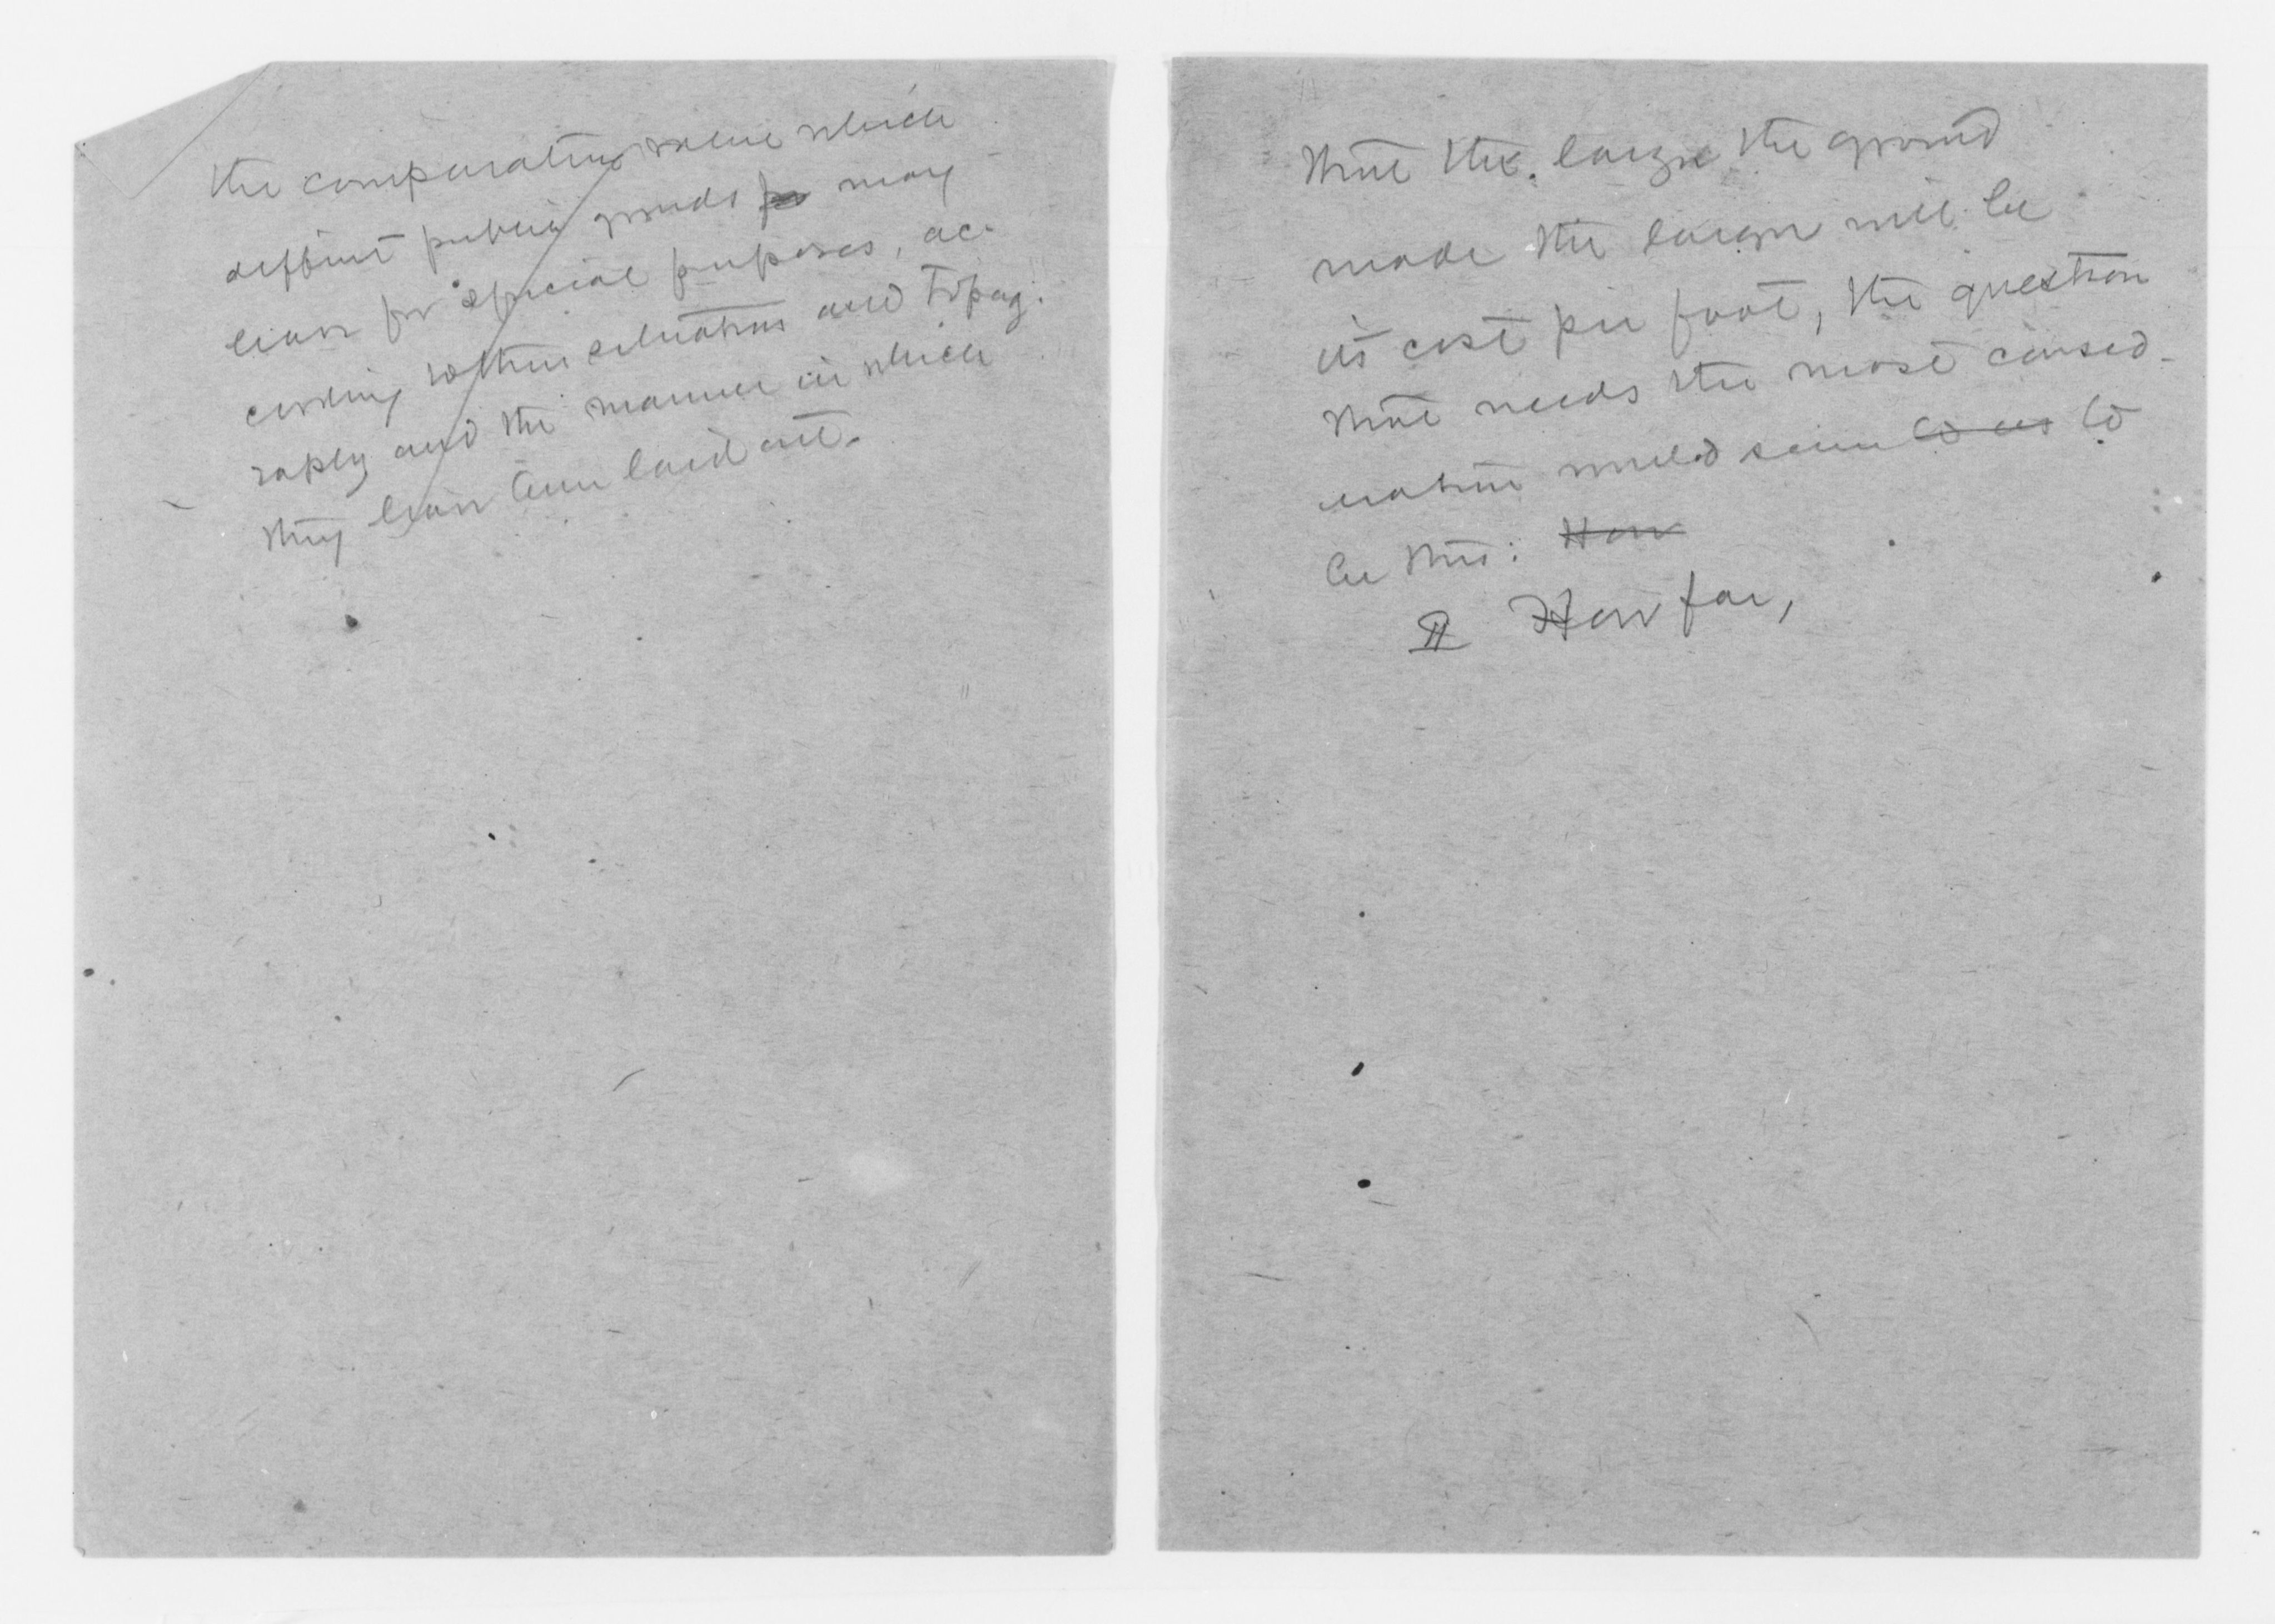 the comparative value which
different public grounds may
have for special purposes, ac-
cording to their situations and topog-
raphy and the manner in which
they have been laid out.
that the larger the ground
made the larger will be
its cost per foot, the question
that needs the most consid-
eration would seem to us to
be this: How
II How far,